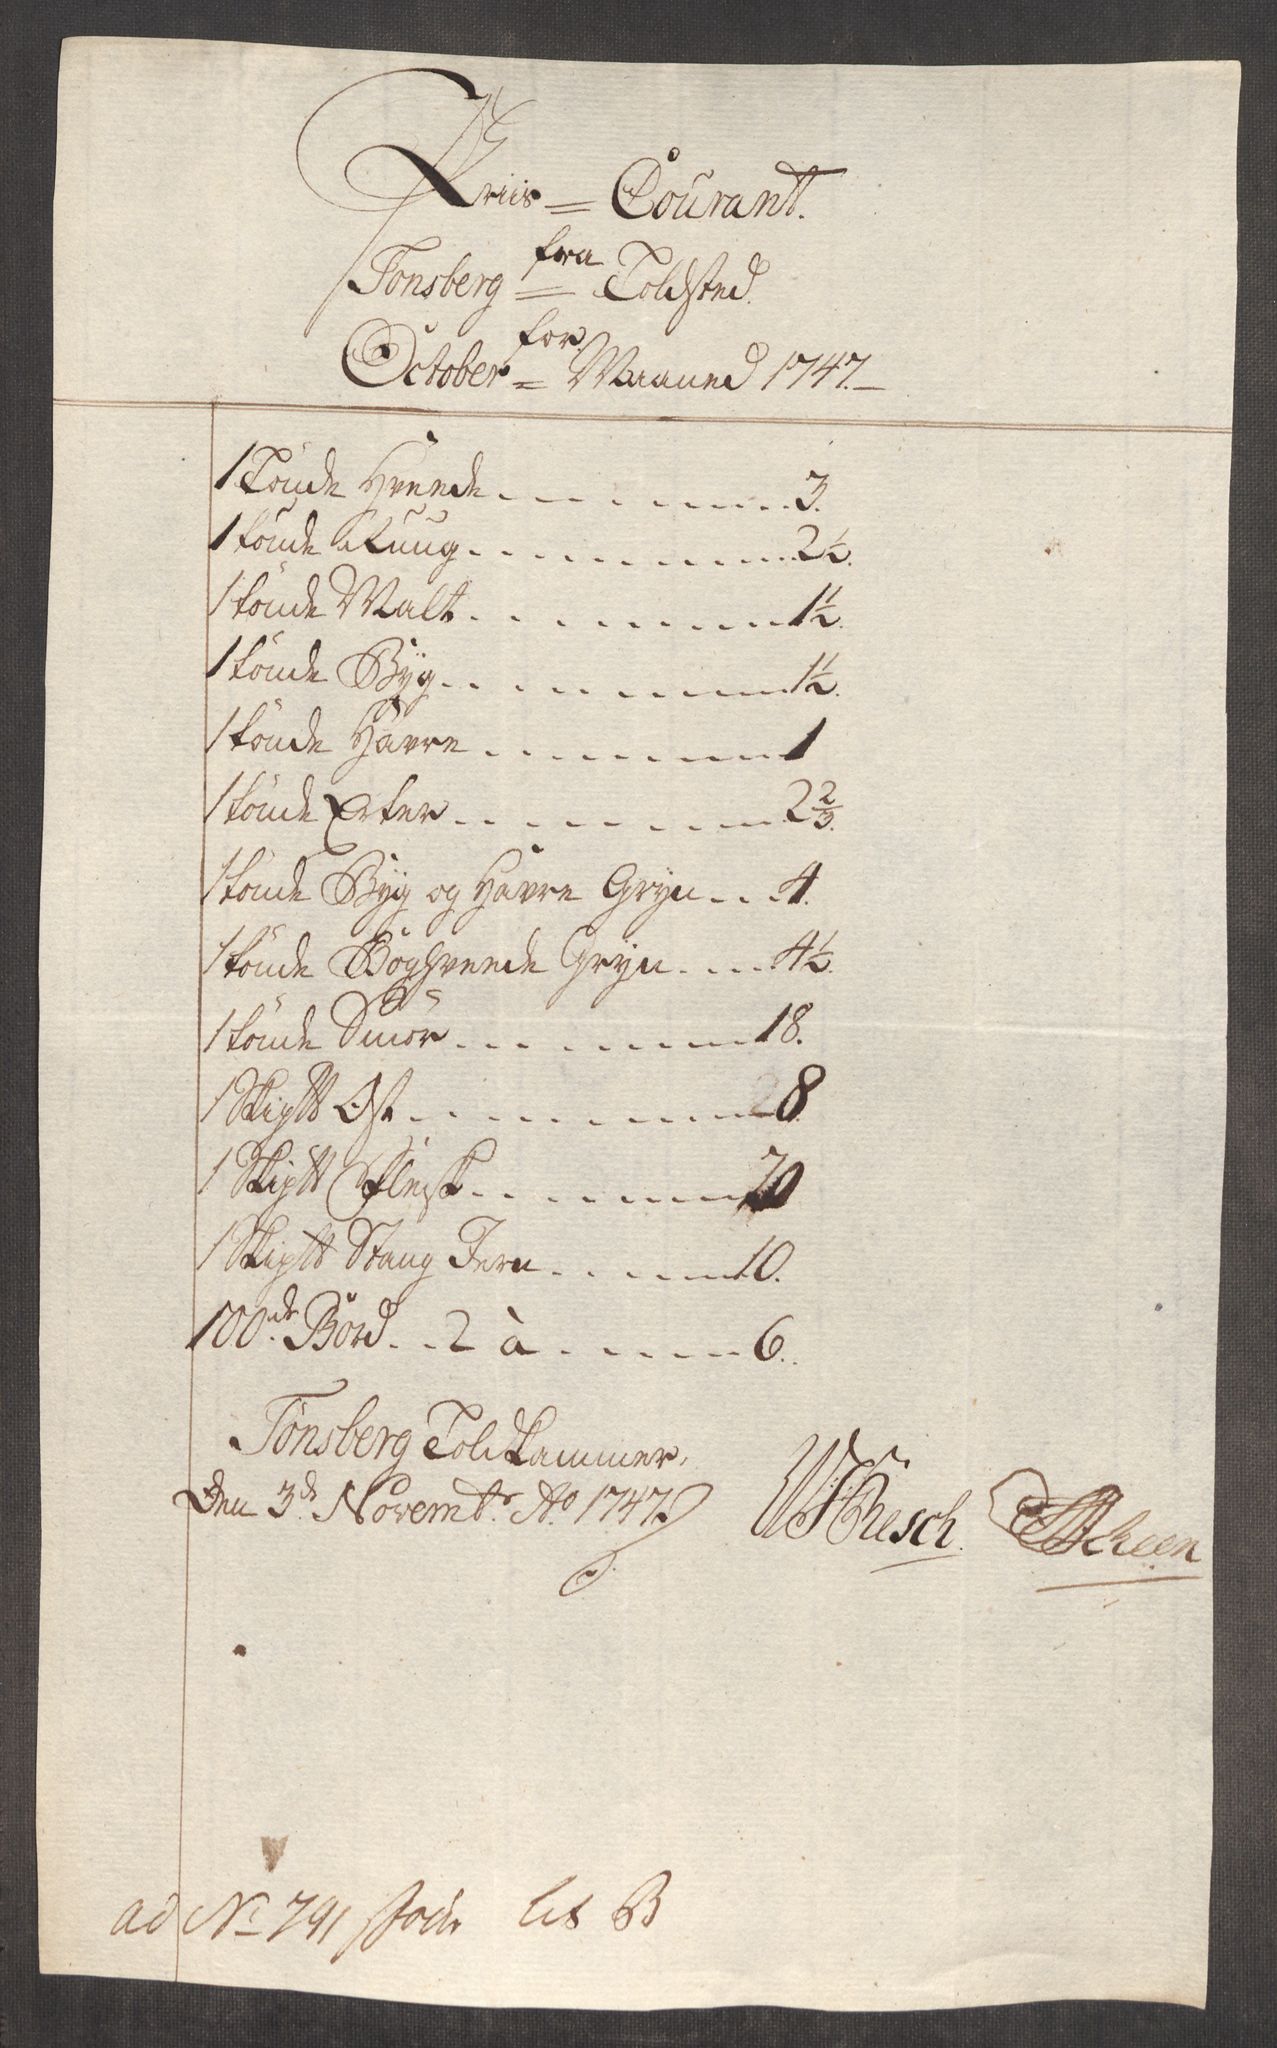 Priis = Courant.
fra
Tonsberg = Toldsted.
for
October = Maaned 1747.
1 Tönde Hveede 3.
1 tönde Ruug 2 1/2.
1 tönde Malt 1 1/2.
1 tönde Byg 1 1/2.
1 tönde Havre 1
1 tönde Erter 2 2/3.
1 tönde Byg og Havre Gryn 4.
1 tönde Boghveede Gryn 4 1/2.
1 tönde Smör 18.
1 Skiptt Ost 8.
1 Skiptt Flesk 20
1 Skiptt Stang Jern 10.
100de Bord 2 à 6.
Tönsberg Toldkammer,
Den 3d. Novembr. Ao 1747.
Resch.
ad No 791 lit B